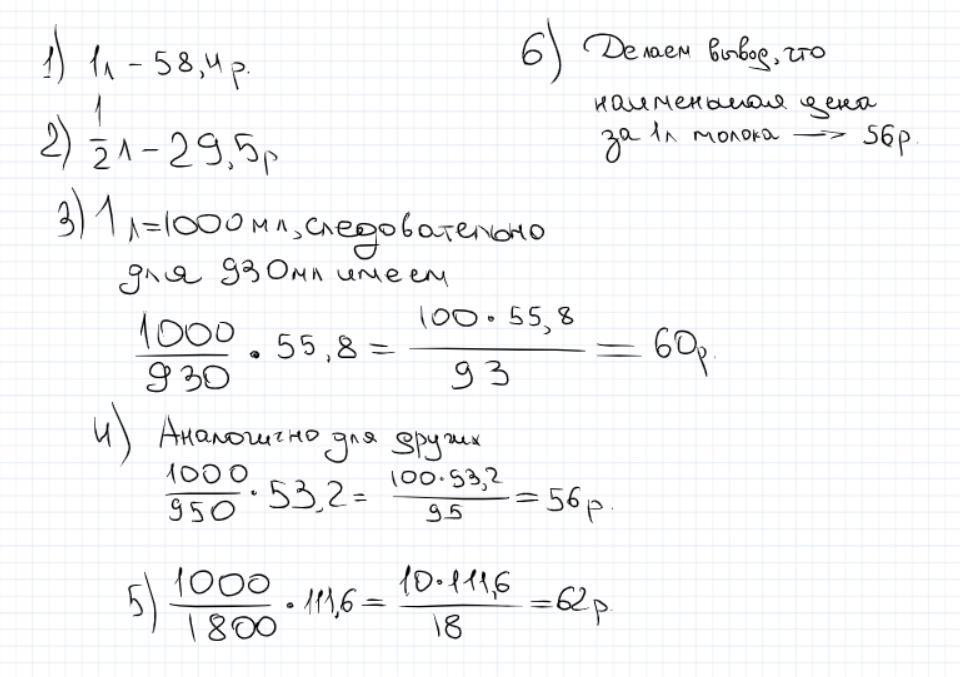 1) 1л – 58,4 р.
2) 1/2 л – 29,5 р
3) 1 л = 1000 мл, следовательно
для 930 мл имеем
1000/930 · 55,8 = 100 · 55,8/93 = 60 р.
4) Аналогично для других
1000/950 · 53,2 = 100 · 53,2/95 = 56 р.
5) 1000/1800 · 111,6 = 10 · 111,6/18 = 62 р.
6) Делаем вывод, что
наименьшая цена
за 1л молока → 56 р.